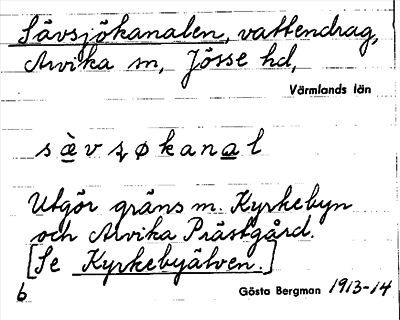 Sävsjökanalen, vattendrag,
Arvika sn, Jösse hd,
Värmlands län
sὲvsʃøkanal
Utgör gräns m. Kyrkebyn
och Arvika Prästgård.
[Se Kyrkebyälven.]
b
Gösta Bergman 1913-14